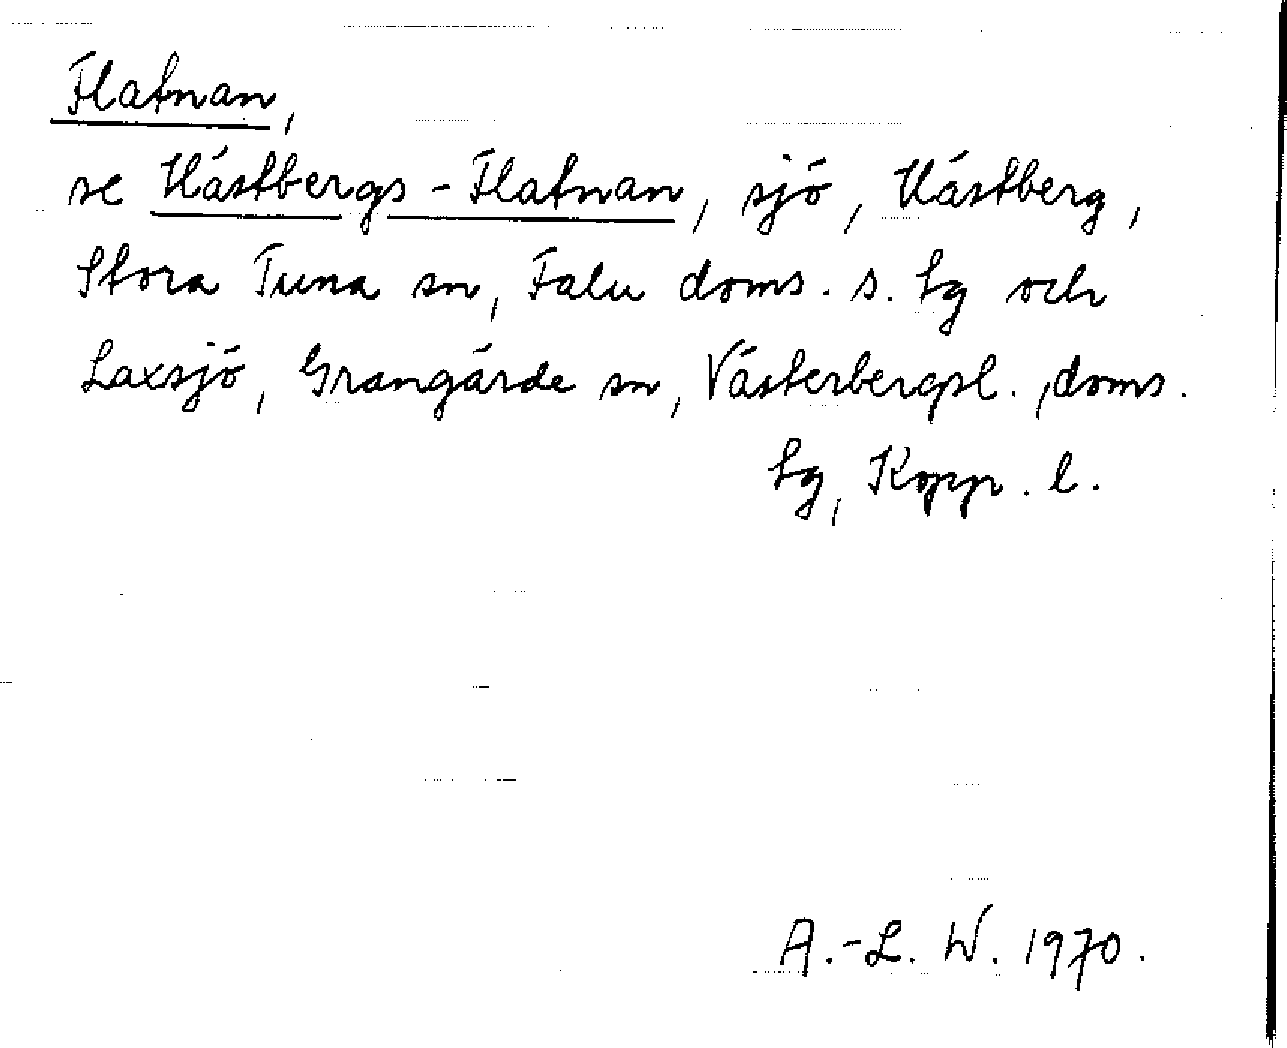 Flatnan,
se Hästbergs-Flatnan, sjö, Hästberg,
Stora Tuna sn, Falu doms. s. tg och
Laxsjö, Grangärde sn, Västerbergsl. doms.
tg, Kopp. l.
A.-L. W. 1970.